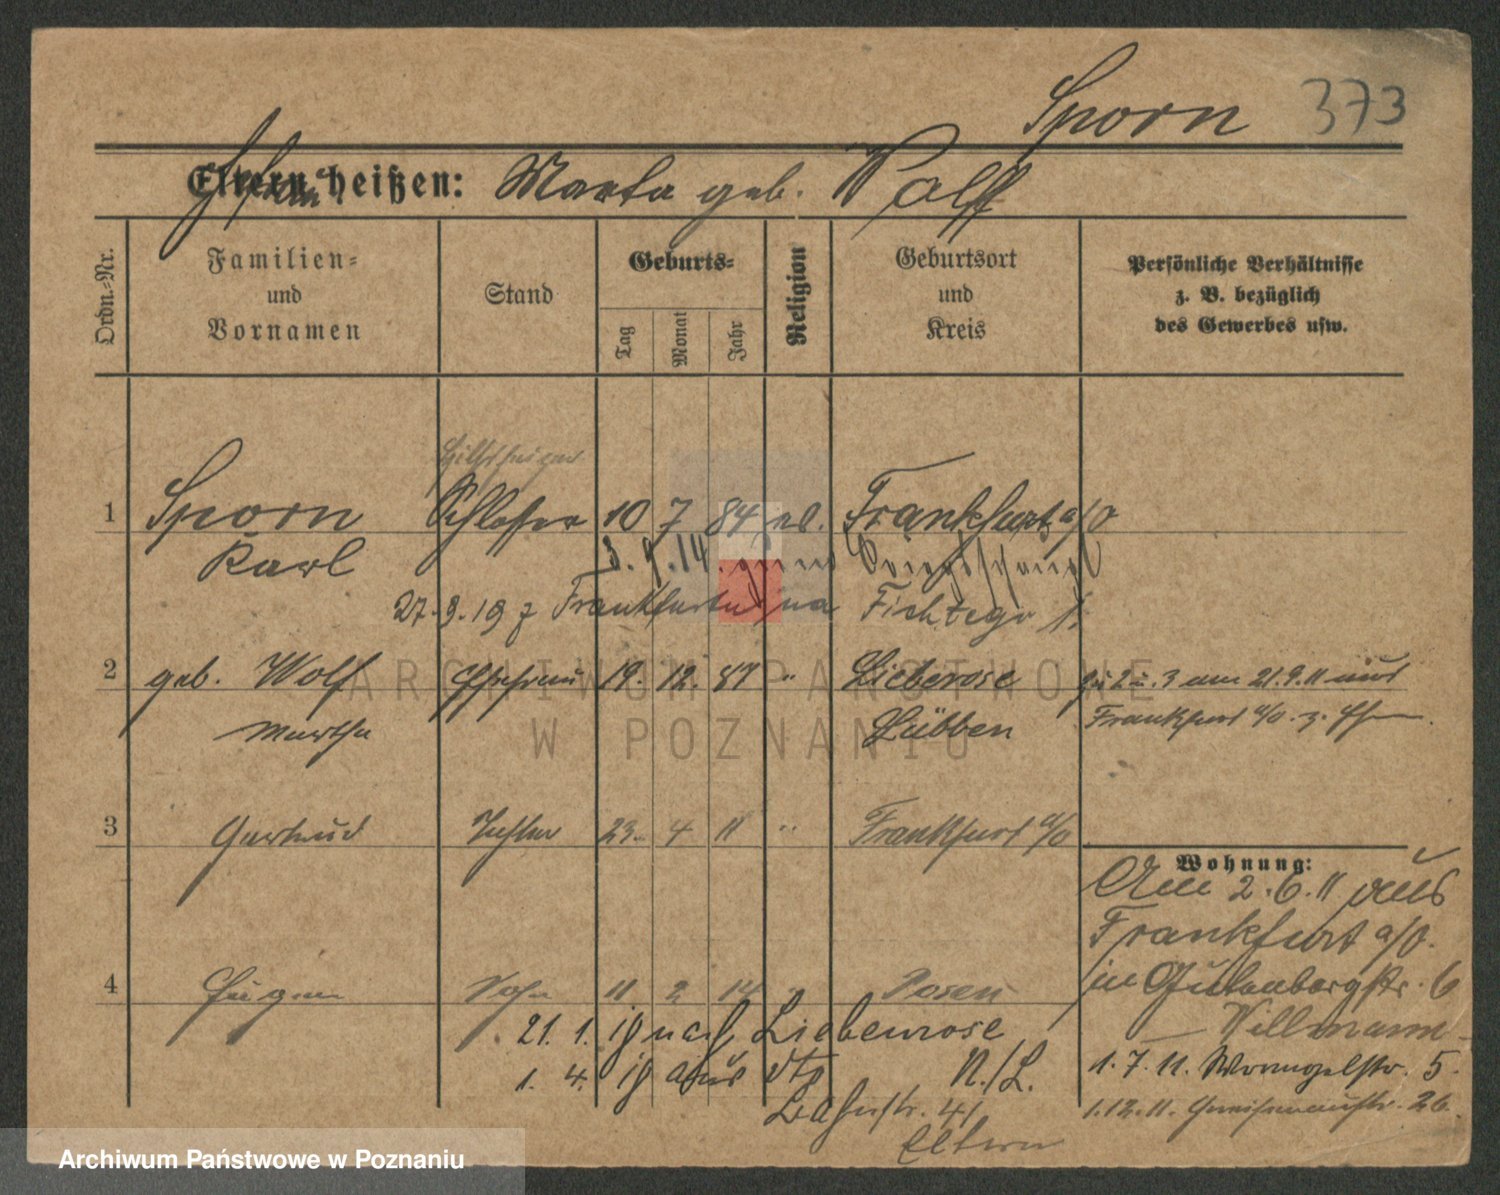 Sporn 373
Eltern heißen: Marta geb. Wolff
Ehefrau
Ordn.-Nr.
Familien-
und
Vornamen
Stand
Geburts-
Tag
Monat
Jahr
Religion
Geburtsort
und
Kreis
Persönliche Verhältnisse
z. B. bezüglich
des Gewerbes usw.
1 Sporn Schlosser 10 7 84 ev. Frankfurt a/O
Karl 3. 9. 14. zum
27. 3. 19 z Frankfurt Fichtestr 1.
2 geb. Wolf Ehefrau 19. 12. 87 " Lieberose zu 2 u. 3 am 21.9.11 aus
Martha Lübben Frankfurt a/O. z. Ehem.
3 Gertrud Tochter 23. 4 11 " Frankfurt a/O
Wohnung:
Am 2.6.11 aus
Frankfurt a/O.
in Gutenbergstr. 6
Willmann
4 Eugen Sohn 11 2 14 " Posen
21. 1. 19 nach Lieberose
N./L.
1. 4. 19 aus dto
1.7.11. Wrangelstr. 5.
1.12.11. Gneisenaustr. 26.
41
Eltern
ARCHIWUM PAŃSTWOWE
W POZNANIU
Archiwum Państwowe w Poznaniu